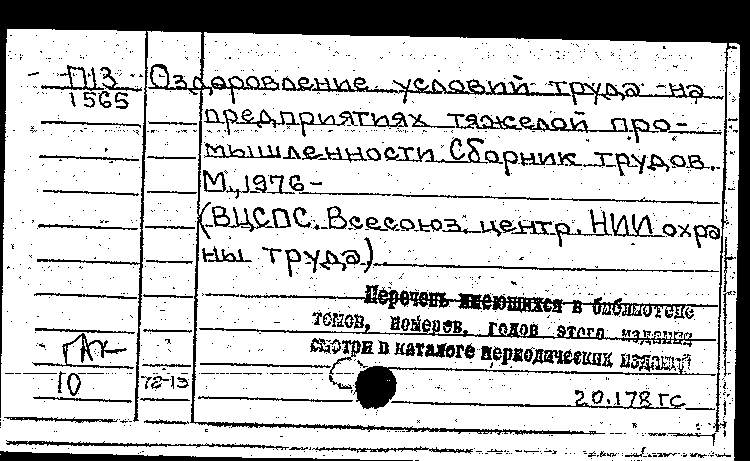 П13 Оздоровление условий труда на
1565
предприятиях тяжелой про-
мышленности. Сборник трудов.
М., 1976-
(ВЦСПС. Всесоюз. центр. НИИ охра
ны труда)
Перечень имеющихся в библиотеке
томов, номеров, годов этого издания
смотри в каталоге периодических изданий
10 72-13
20.178 гс